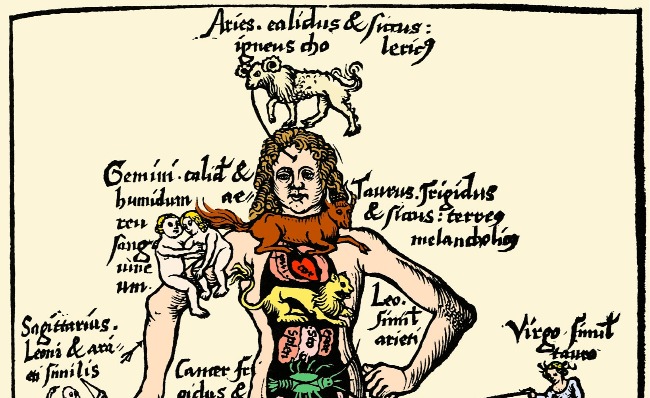 Aries. calidus & siccus:
igneus cho lericꝰ
Gemini. calid̃ &
humidum ae-
reu
sang
uine
um.
Taurus. frigidus
& siccus: terreꝰ
melancholicꝰ
Leo.
simil̃
arieti
Sagittarius.
Leoni & ari
eti similis
Cancer fri
gidus &
Virgo simil̃
tauro